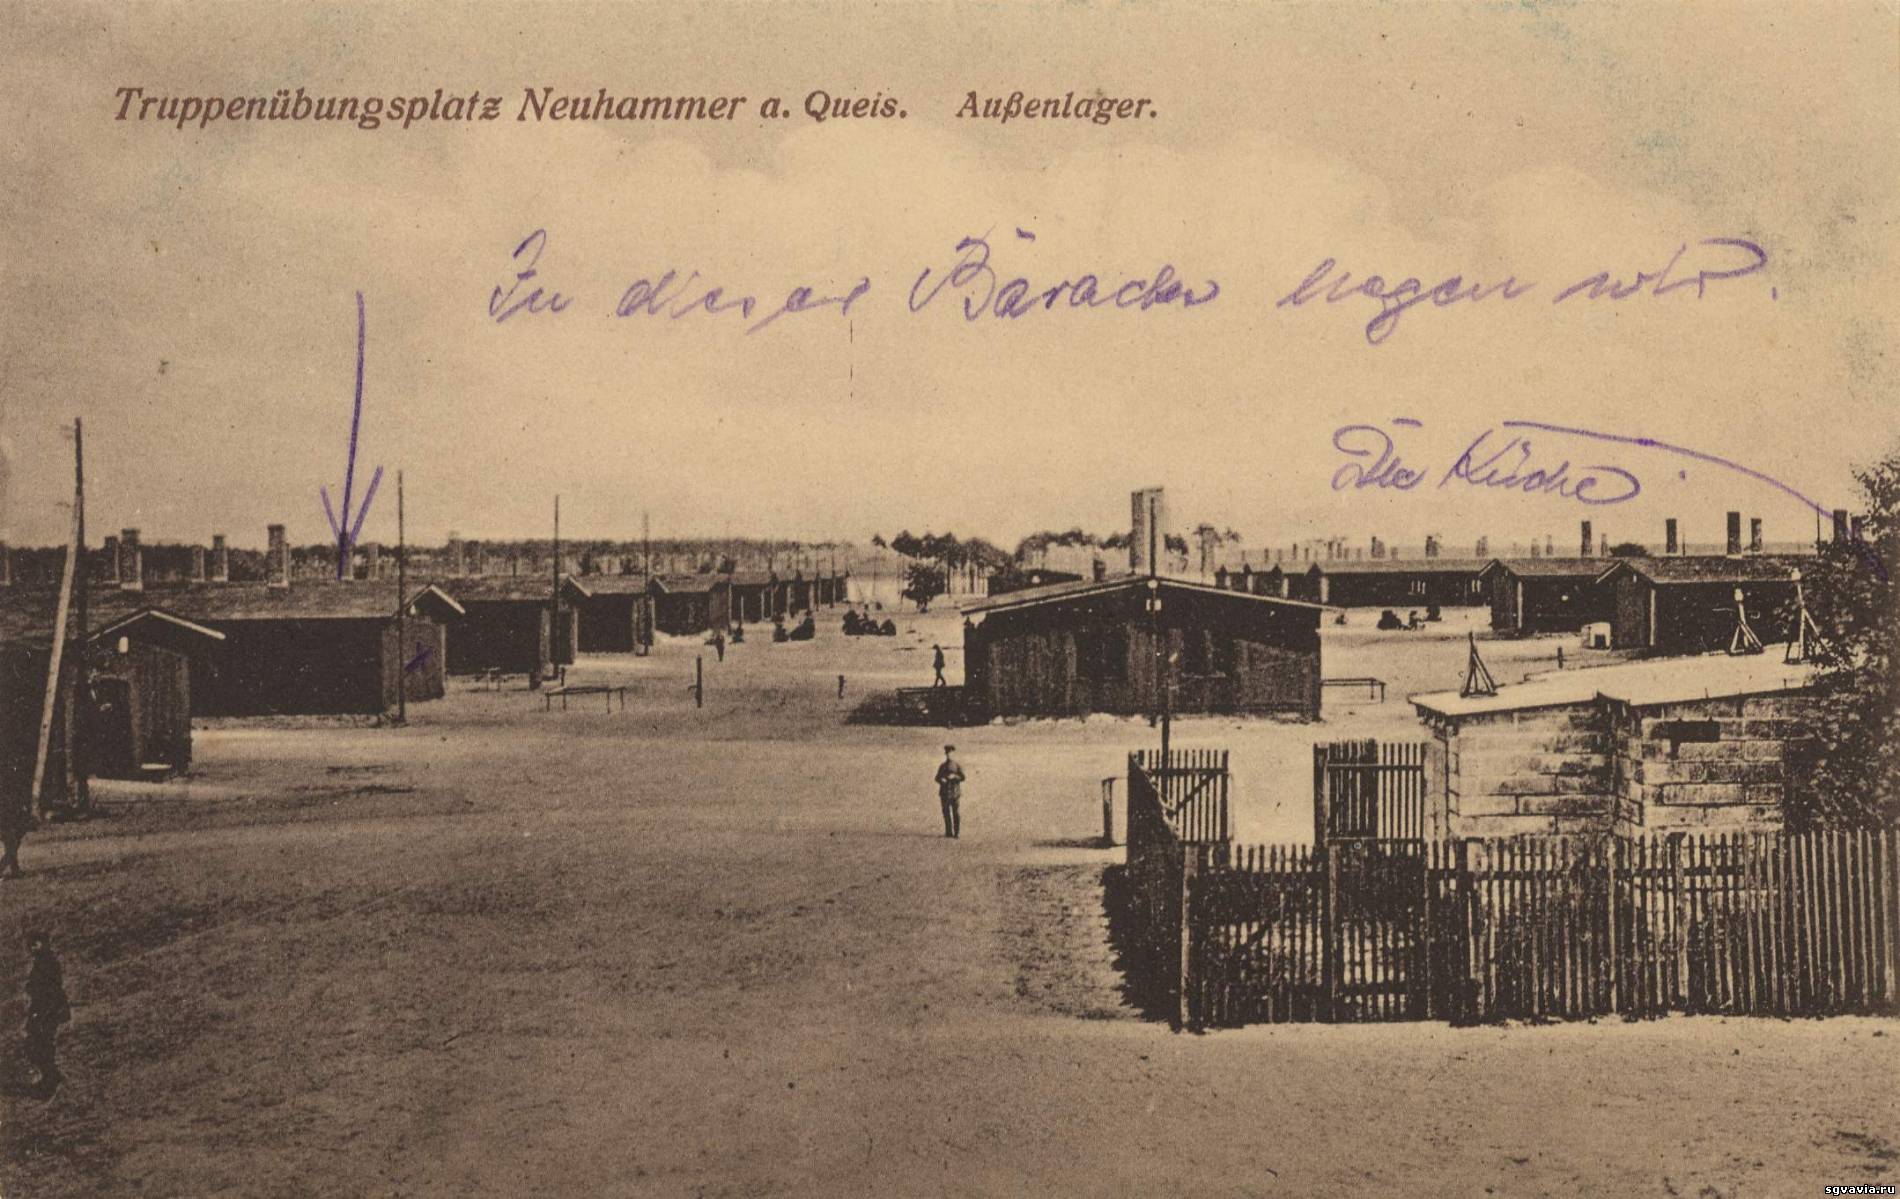 Truppenübungsplatz Neuhammer a. Queis. Außenlager.
In dieser Baracke liegen wir.
Die Küche
sgvavia.ru